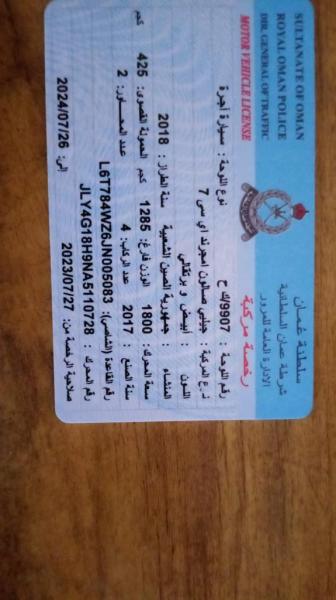 SULTANATE OF OMAN
سلطنة عُمان
ROYAL OMAN POLICE
شرطة عمان السلطانية
DIR. GENERAL OF TRAFFIC
الادارة العامة للمرور
MOTOR VEHICLE LICENSE
رخصة مركبة
رقم اللوحة : 9907/ك ح
نوع اللوحة : سيارة أجرة
نوع المركبة : جيلي صالون امجرند اي سي 7
اللون : أبيض و برتقالي
المنشاء : جمهورية الصين الشعبية
سنة الطراز : 2018
سعة المحرك: 1800
الوزن فارغ: 1285 كجم
الحمولة القصوى: 425 كجم
سنة الصنع : 2017
عدد الركاب: 4
عدد المحاور: 2
رقم القاعدة (الشاصي): L6T784WZ6JN005083
رقم المحرك: JLY4G18H9NA5110728
صلاحية الرخصة من: 2023/07/27
الى: 2024/07/26